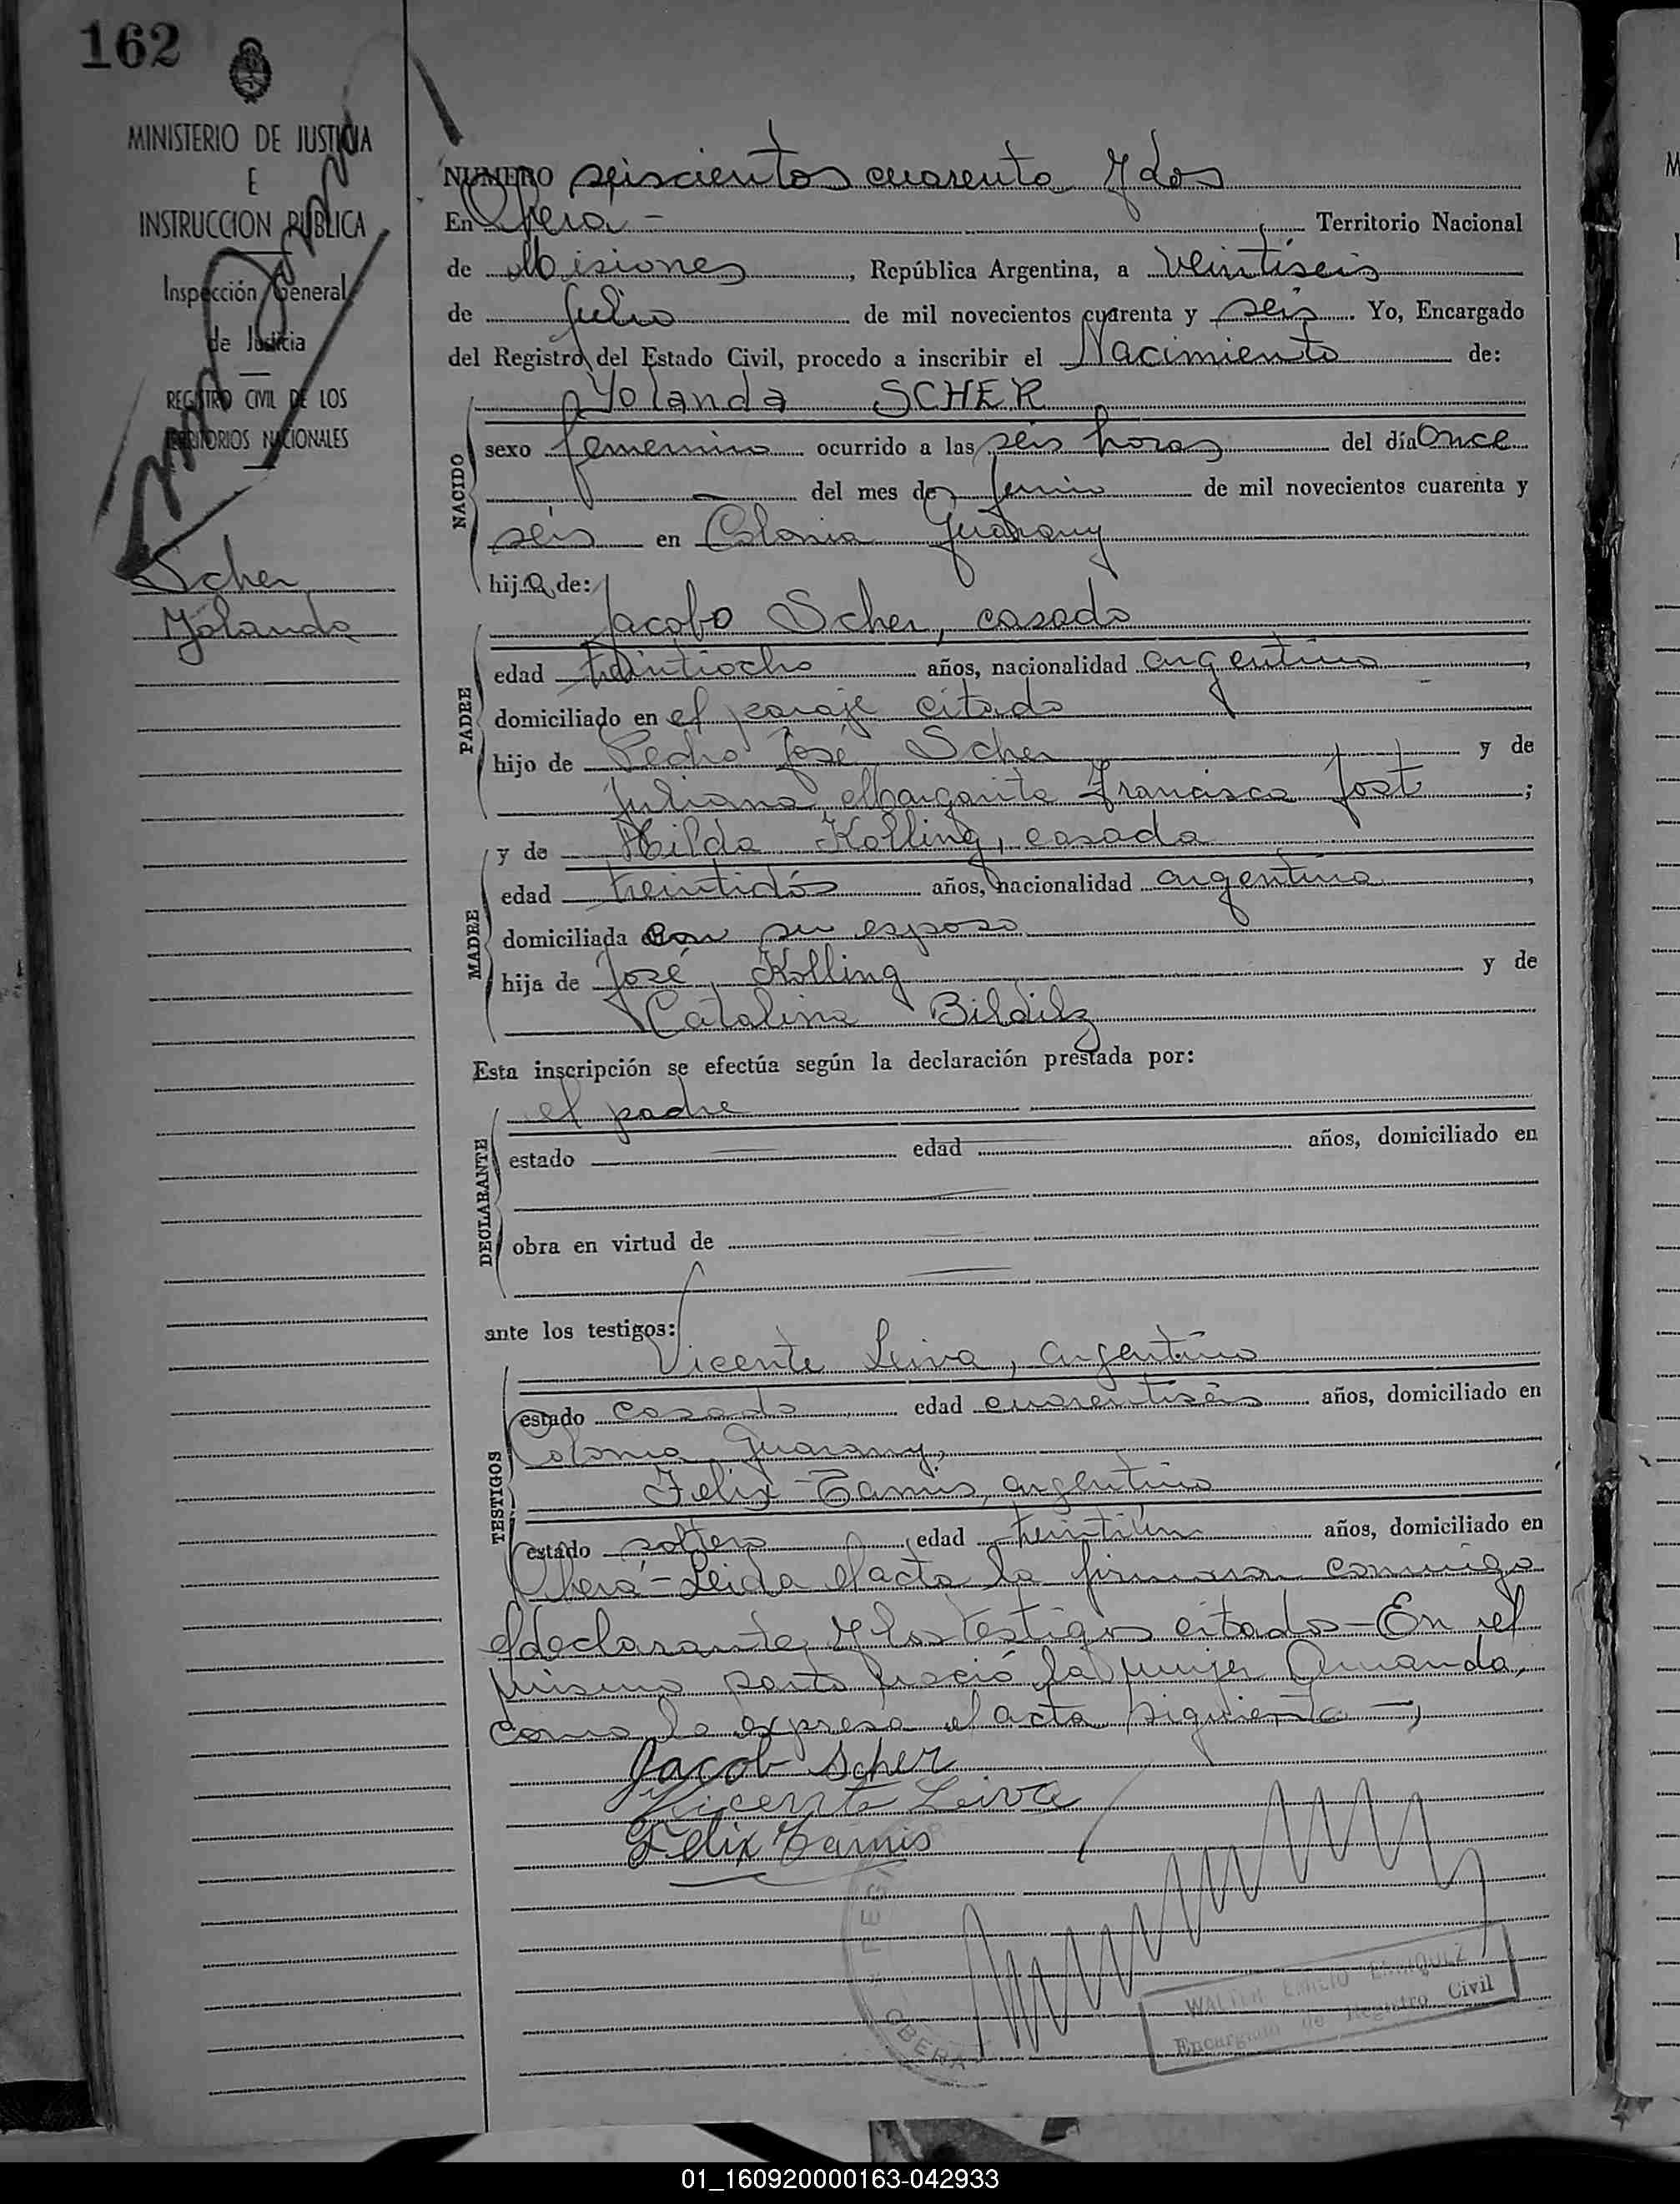 162
MINISTERIO DE JUSTICIA
E
INSTRUCCION PUBLICA
Inspección General
de Justicia
REGISTRO CIVIL DE LOS
TERRITORIOS NACIONALES
Scher
Yolanda
NUMERO seiscientos cuarenta y dos
En Oberá - Territorio Nacional
de Misiones, República Argentina, a veintiseis
de Julio de mil novecientos cuarenta y seis. Yo, Encargado
del Registro del Estado Civil, procedo a inscribir el Nacimiento de:
Yolanda SCHER
NACIDO
sexo femenino ocurrido a las seis horas del día Once
del mes de junio de mil novecientos cuarenta y
seis en Colonia Guarany
hija de:
Jacobo Scher, casado
PADRE
edad treintiocho años, nacionalidad argentino,
domiciliado en el paraje citado
hijo de Pedro José Scher y de
Juliana Margarita Francisca Jost;
y de Hilda Kolling, casada
MADRE
edad treintidós años, nacionalidad argentina,
domiciliada con su esposo
hija de José Kolling y de
Catalina Bildilz
Esta inscripción se efectúa según la declaración prestada por:
el padre
DECLARANTE
estado edad años, domiciliado en
obra en virtud de
ante los testigos:
Vicente Leiva, argentino
TESTIGOS
estado casado edad cuarentiséis años, domiciliado en
Colonia Guarany,
Felix Tamis, argentino
estado soltero edad treintiún años, domiciliado en
Oberá - Leida el acta la firmaron conmigo
el declarante y los testigos citados - En el
mismo parto nació la mujer Amanda,
como lo expresa el acta siguiente -
Jacob Scher
Vicente Leiva
Felix Tamis
OBERA
WALTER EMILIO ENRIQUEZ
Encargado de Registro Civil
01_160920000163-042933